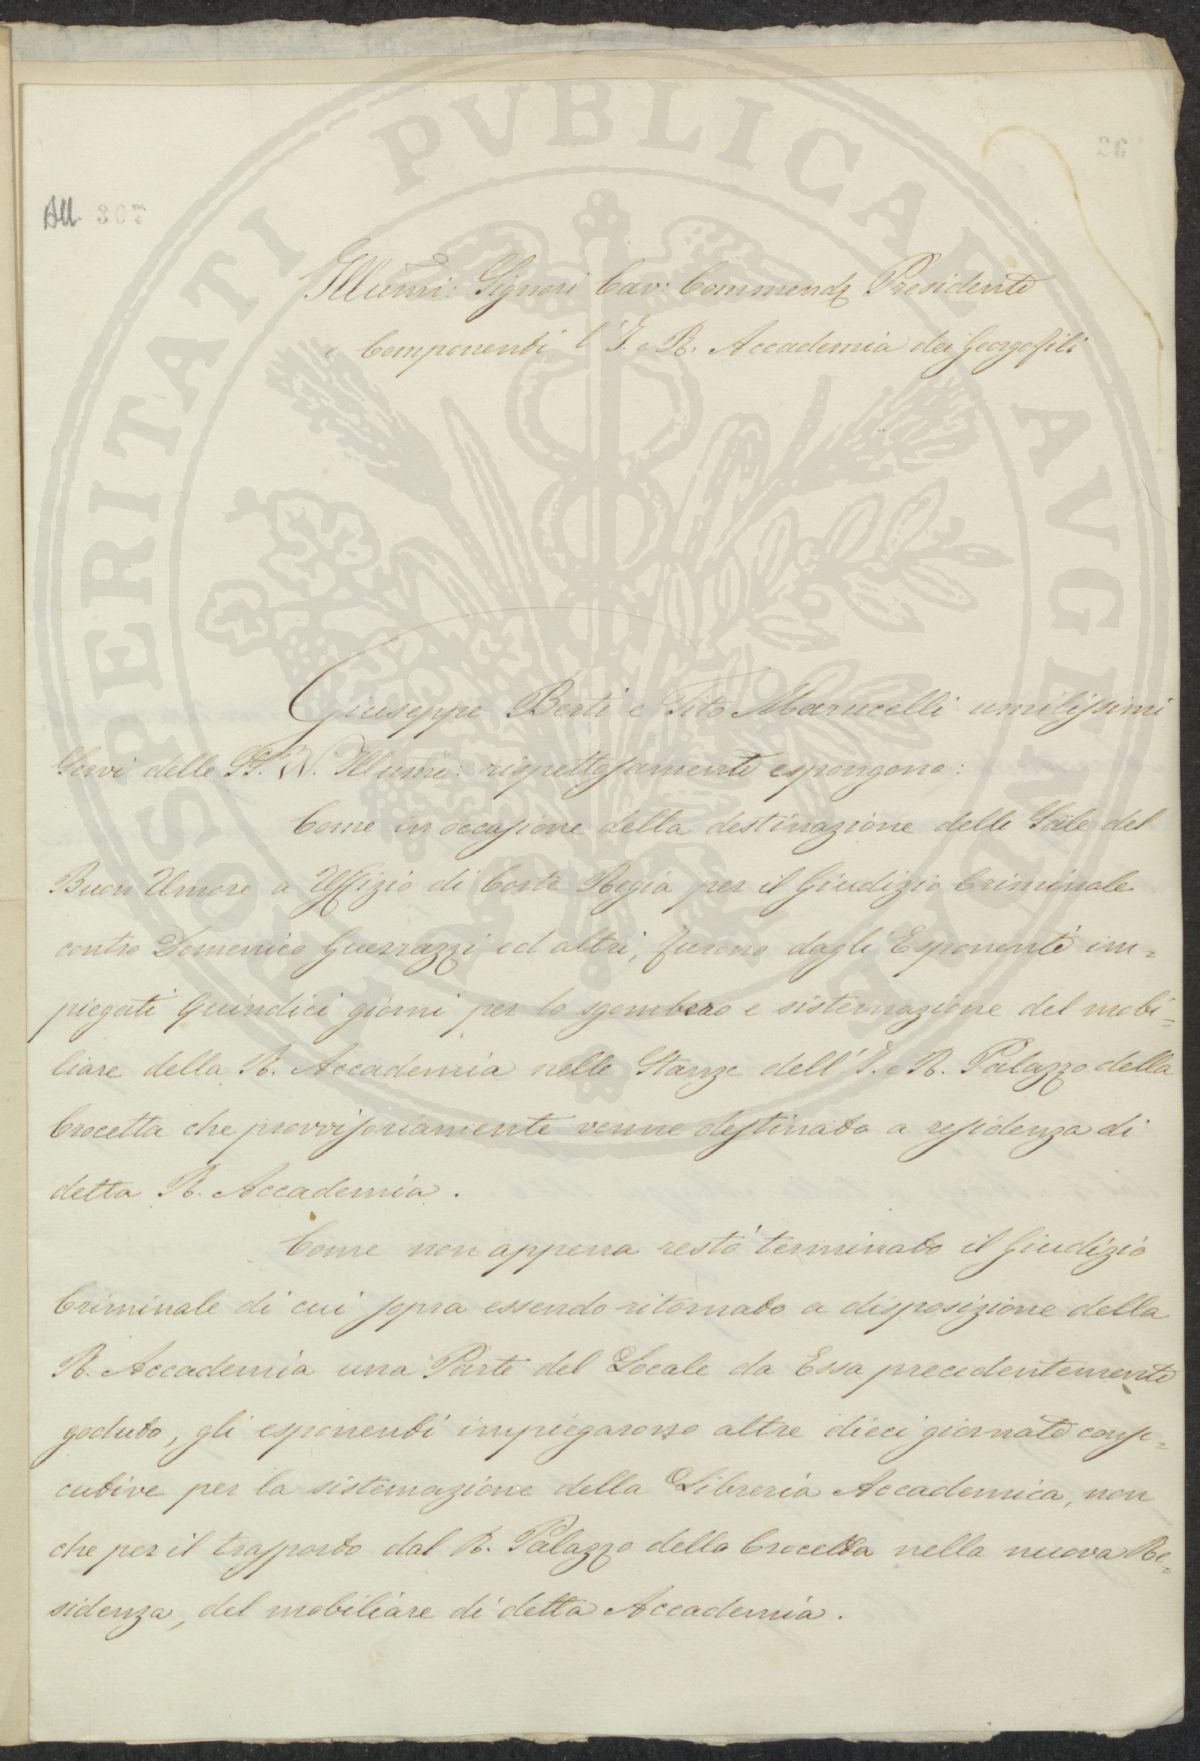 PROSPERITATI PVBLICAE AVGENDAE
All 307
Illumi: Signori Cav: Commend: Presidente
e Componenti l'I. e R. Accademia dei Georgofili
Giuseppe Berti e Tito Marucelli umilissimi
Servi delle SS. VV. Illumi: rispettosamente espongono:
Come in occasione della destinazione delle Sale del
Buon Umore a Uffizio di Corte Regia per il Giudizio Criminale
contro Domenico Guerrazzi ed altri, furono dagli Esponenti im=
piegati quindici giorni per lo sgombero e sistemazione del mobi=
liare della R. Accademia nelle Stanze dell'I. e R. Palazzo della
Crocetta che provvisoriamente venne destinato a residenza di
detta R. Accademia.
Come non appena restò terminato il Giudizio
Criminale di cui sopra essendo ritornato a disposizione della
R. Accademia una Parte del Locale da Essa precedentemente
goduto, gli esponenti impiegarono altre dieci giornate conse=
cutive per la sistemazione della Libreria Accademica, non
che per il trasporto dal R. Palazzo della Crocetta nella nuova Re=
sidenza, del mobiliare di detta Accademia.